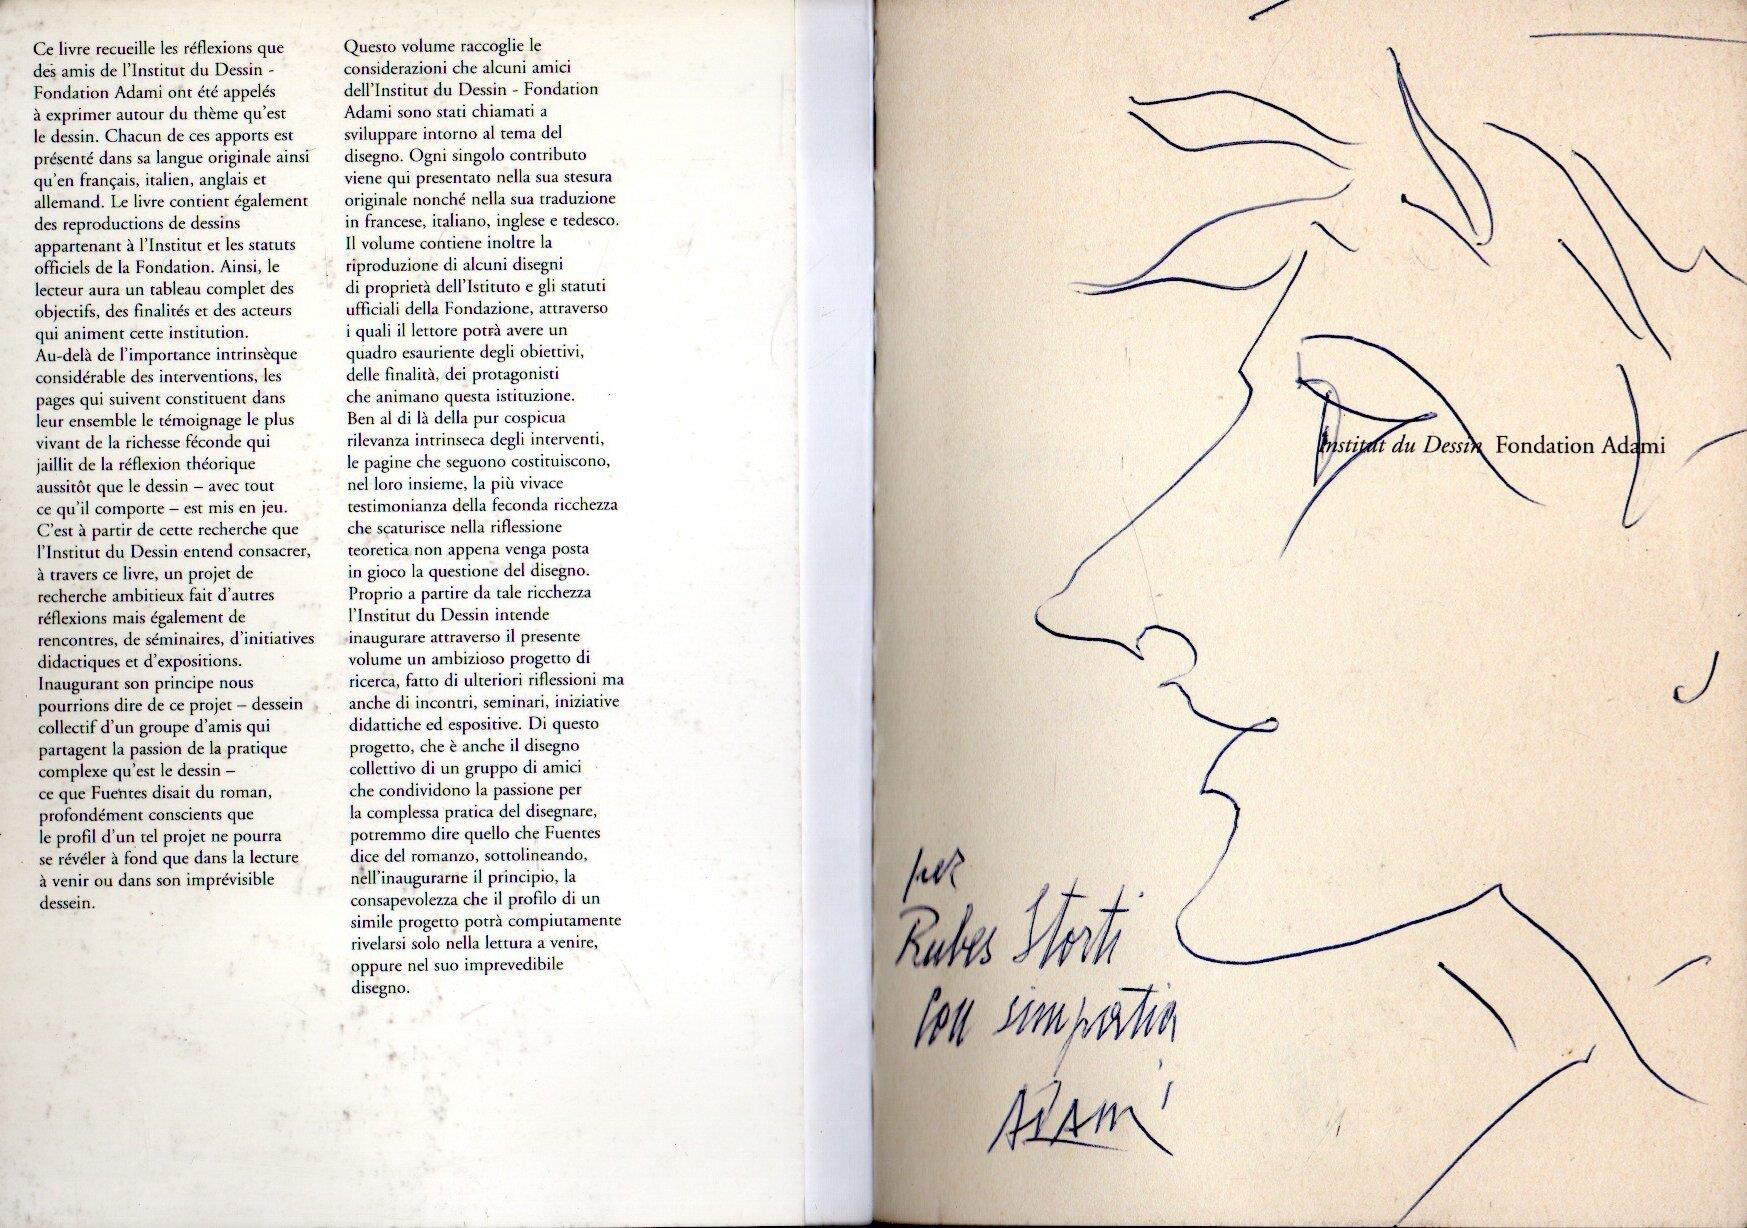 Ce livre recueille les réflexions que
des amis de l'Institut du Dessin -
Fondation Adami ont été appelés
à exprimer autour du thème qu'est
le dessin. Chacun de ces apports est
présenté dans sa langue originale ainsi
qu'en français, italien, anglais et
allemand. Le livre contient également
des reproductions de dessins
appartenant à l'Institut et les statuts
officiels de la Fondation. Ainsi, le
lecteur aura un tableau complet des
objectifs, des finalités et des acteurs
qui animent cette institution.
Au-delà de l'importance intrinsèque
considérable des interventions, les
pages qui suivent constituent dans
leur ensemble le témoignage le plus
vivant de la richesse féconde qui
jaillit de la réflexion théorique
aussitôt que le dessin – avec tout
ce qu'il comporte – est mis en jeu.
C'est à partir de cette recherche que
l'Institut du Dessin entend consacrer,
à travers ce livre, un projet de
recherche ambitieux fait d'autres
réflexions mais également de
rencontres, de séminaires, d'initiatives
didactiques et d'expositions.
Inaugurant son principe nous
pourrions dire de ce projet – dessein
collectif d'un groupe d'amis qui
partagent la passion de la pratique
complexe qu'est le dessin –
ce que Fuentes disait du roman,
profondément conscients que
le profil d'un tel projet ne pourra
se révéler à fond que dans la lecture
à venir ou dans son imprévisible
dessein.
Questo volume raccoglie le
considerazioni che alcuni amici
dell'Institut du Dessin - Fondation
Adami sono stati chiamati a
sviluppare intorno al tema del
disegno. Ogni singolo contributo
viene qui presentato nella sua stesura
originale nonché nella sua traduzione
in francese, italiano, inglese e tedesco.
Il volume contiene inoltre la
riproduzione di alcuni disegni
di proprietà dell'Istituto e gli statuti
ufficiali della Fondazione, attraverso
i quali il lettore potrà avere un
quadro esauriente degli obiettivi,
delle finalità, dei protagonisti
che animano questa istituzione.
Ben al di là della pur cospicua
rilevanza intrinseca degli interventi,
le pagine che seguono costituiscono,
nel loro insieme, la più vivace
testimonianza della feconda ricchezza
che scaturisce nella riflessione
teoretica non appena venga posta
in gioco la questione del disegno.
Proprio a partire da tale ricchezza
l'Institut du Dessin intende
inaugurare attraverso il presente
volume un ambizioso progetto di
ricerca, fatto di ulteriori riflessioni ma
anche di incontri, seminari, iniziative
didattiche ed espositive. Di questo
progetto, che è anche il disegno
collettivo di un gruppo di amici
che condividono la passione per
la complessa pratica del disegnare,
potremmo dire quello che Fuentes
dice del romanzo, sottolineando,
nell'inaugurarne il principio, la
consapevolezza che il profilo di un
simile progetto potrà compiutamente
rivelarsi solo nella lettura a venire,
oppure nel suo imprevedibile
disegno.
Institut du Dessin Fondation Adami
per
Rubes Storti
Con simpatia
Adami